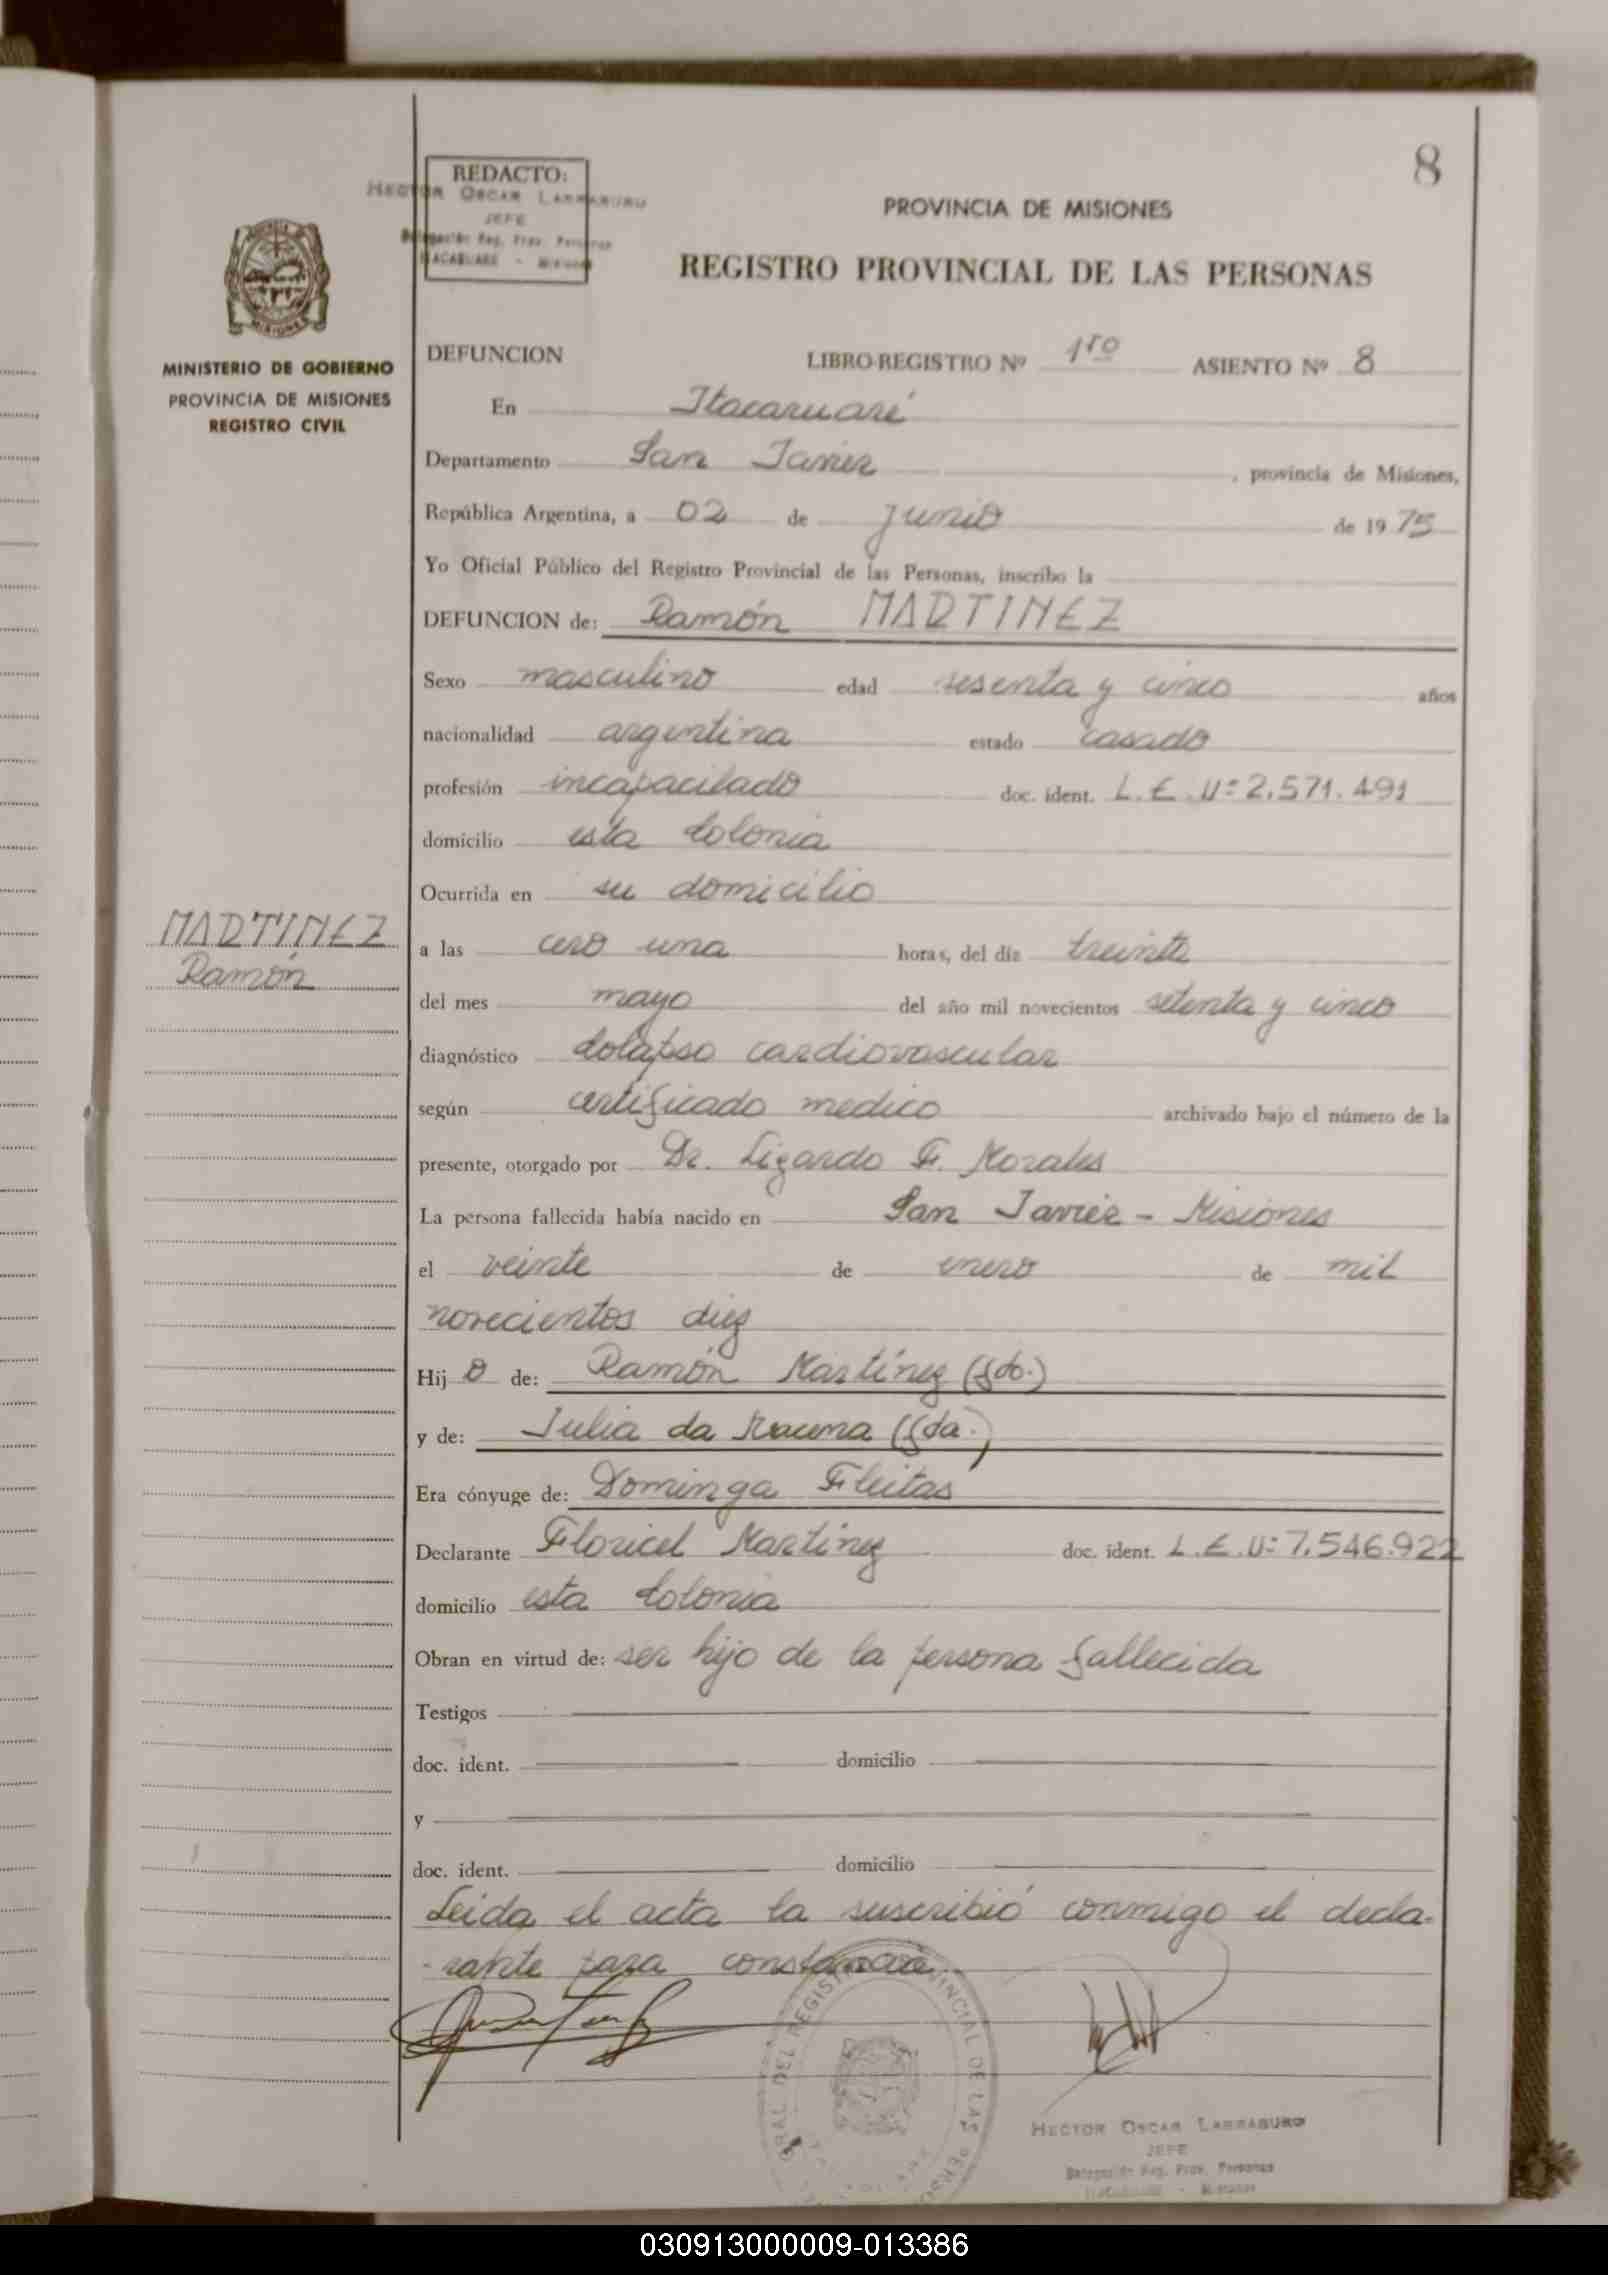 8
REDACTO:
HECTOR OSCAR LARRABURU
JEFE
Delegación Reg. Prov. Personas
ITACARUARE - Misiones
PROVINCIA DE MISIONES
REGISTRO PROVINCIAL DE LAS PERSONAS
MISIONES
MINISTERIO DE GOBIERNO
PROVINCIA DE MISIONES
REGISTRO CIVIL
DEFUNCION LIBRO-REGISTRO Nº 1ro ASIENTO Nº 8
En Itacaruaré
Departamento San Javier, provincia de Misiones,
República Argentina, a 02 de junio de 1975
Yo Oficial Público del Registro Provincial de las Personas, inscribo la
DEFUNCION de: Ramón MARTINEZ
Sexo masculino edad sesenta y cinco años
nacionalidad argentina estado casado
profesión incapacitado doc. ident. L.E.Nº 2.571.491
domicilio esta Colonia
Ocurrida en su domicilio
MARTINEZ
Ramón
a las cero una horas, del día treinta
del mes mayo del año mil novecientos setenta y cinco
diagnóstico Colapso cardiovascular
según certificado medico archivado bajo el número de la
presente, otorgado por Dr. Ligardo F. Morales
La persona fallecida había nacido en San Javier - Misiones
el veinte de enero de mil
novecientos diez
Hijo de: Ramón Martínez (fdo.)
y de: Julia da (fda.)
Era cónyuge de: Dominga Fleitas
Declarante Floricel Martínez doc. ident. L.E.Nº 7.546.922
domicilio esta Colonia
Obran en virtud de: ser hijo de la persona fallecida
Testigos
doc. ident. domicilio
y
doc. ident. domicilio
Leida el acta la suscribió conmigo el decla-
-rante para constancia.
DEL REGISTRO PROVINCIAL DE LAS PERSO
HECTOR OSCAR LARRABURU
JEFE
Delegación Reg. Prov. Personas
ITACARUARE - Misiones
030913000009-013386